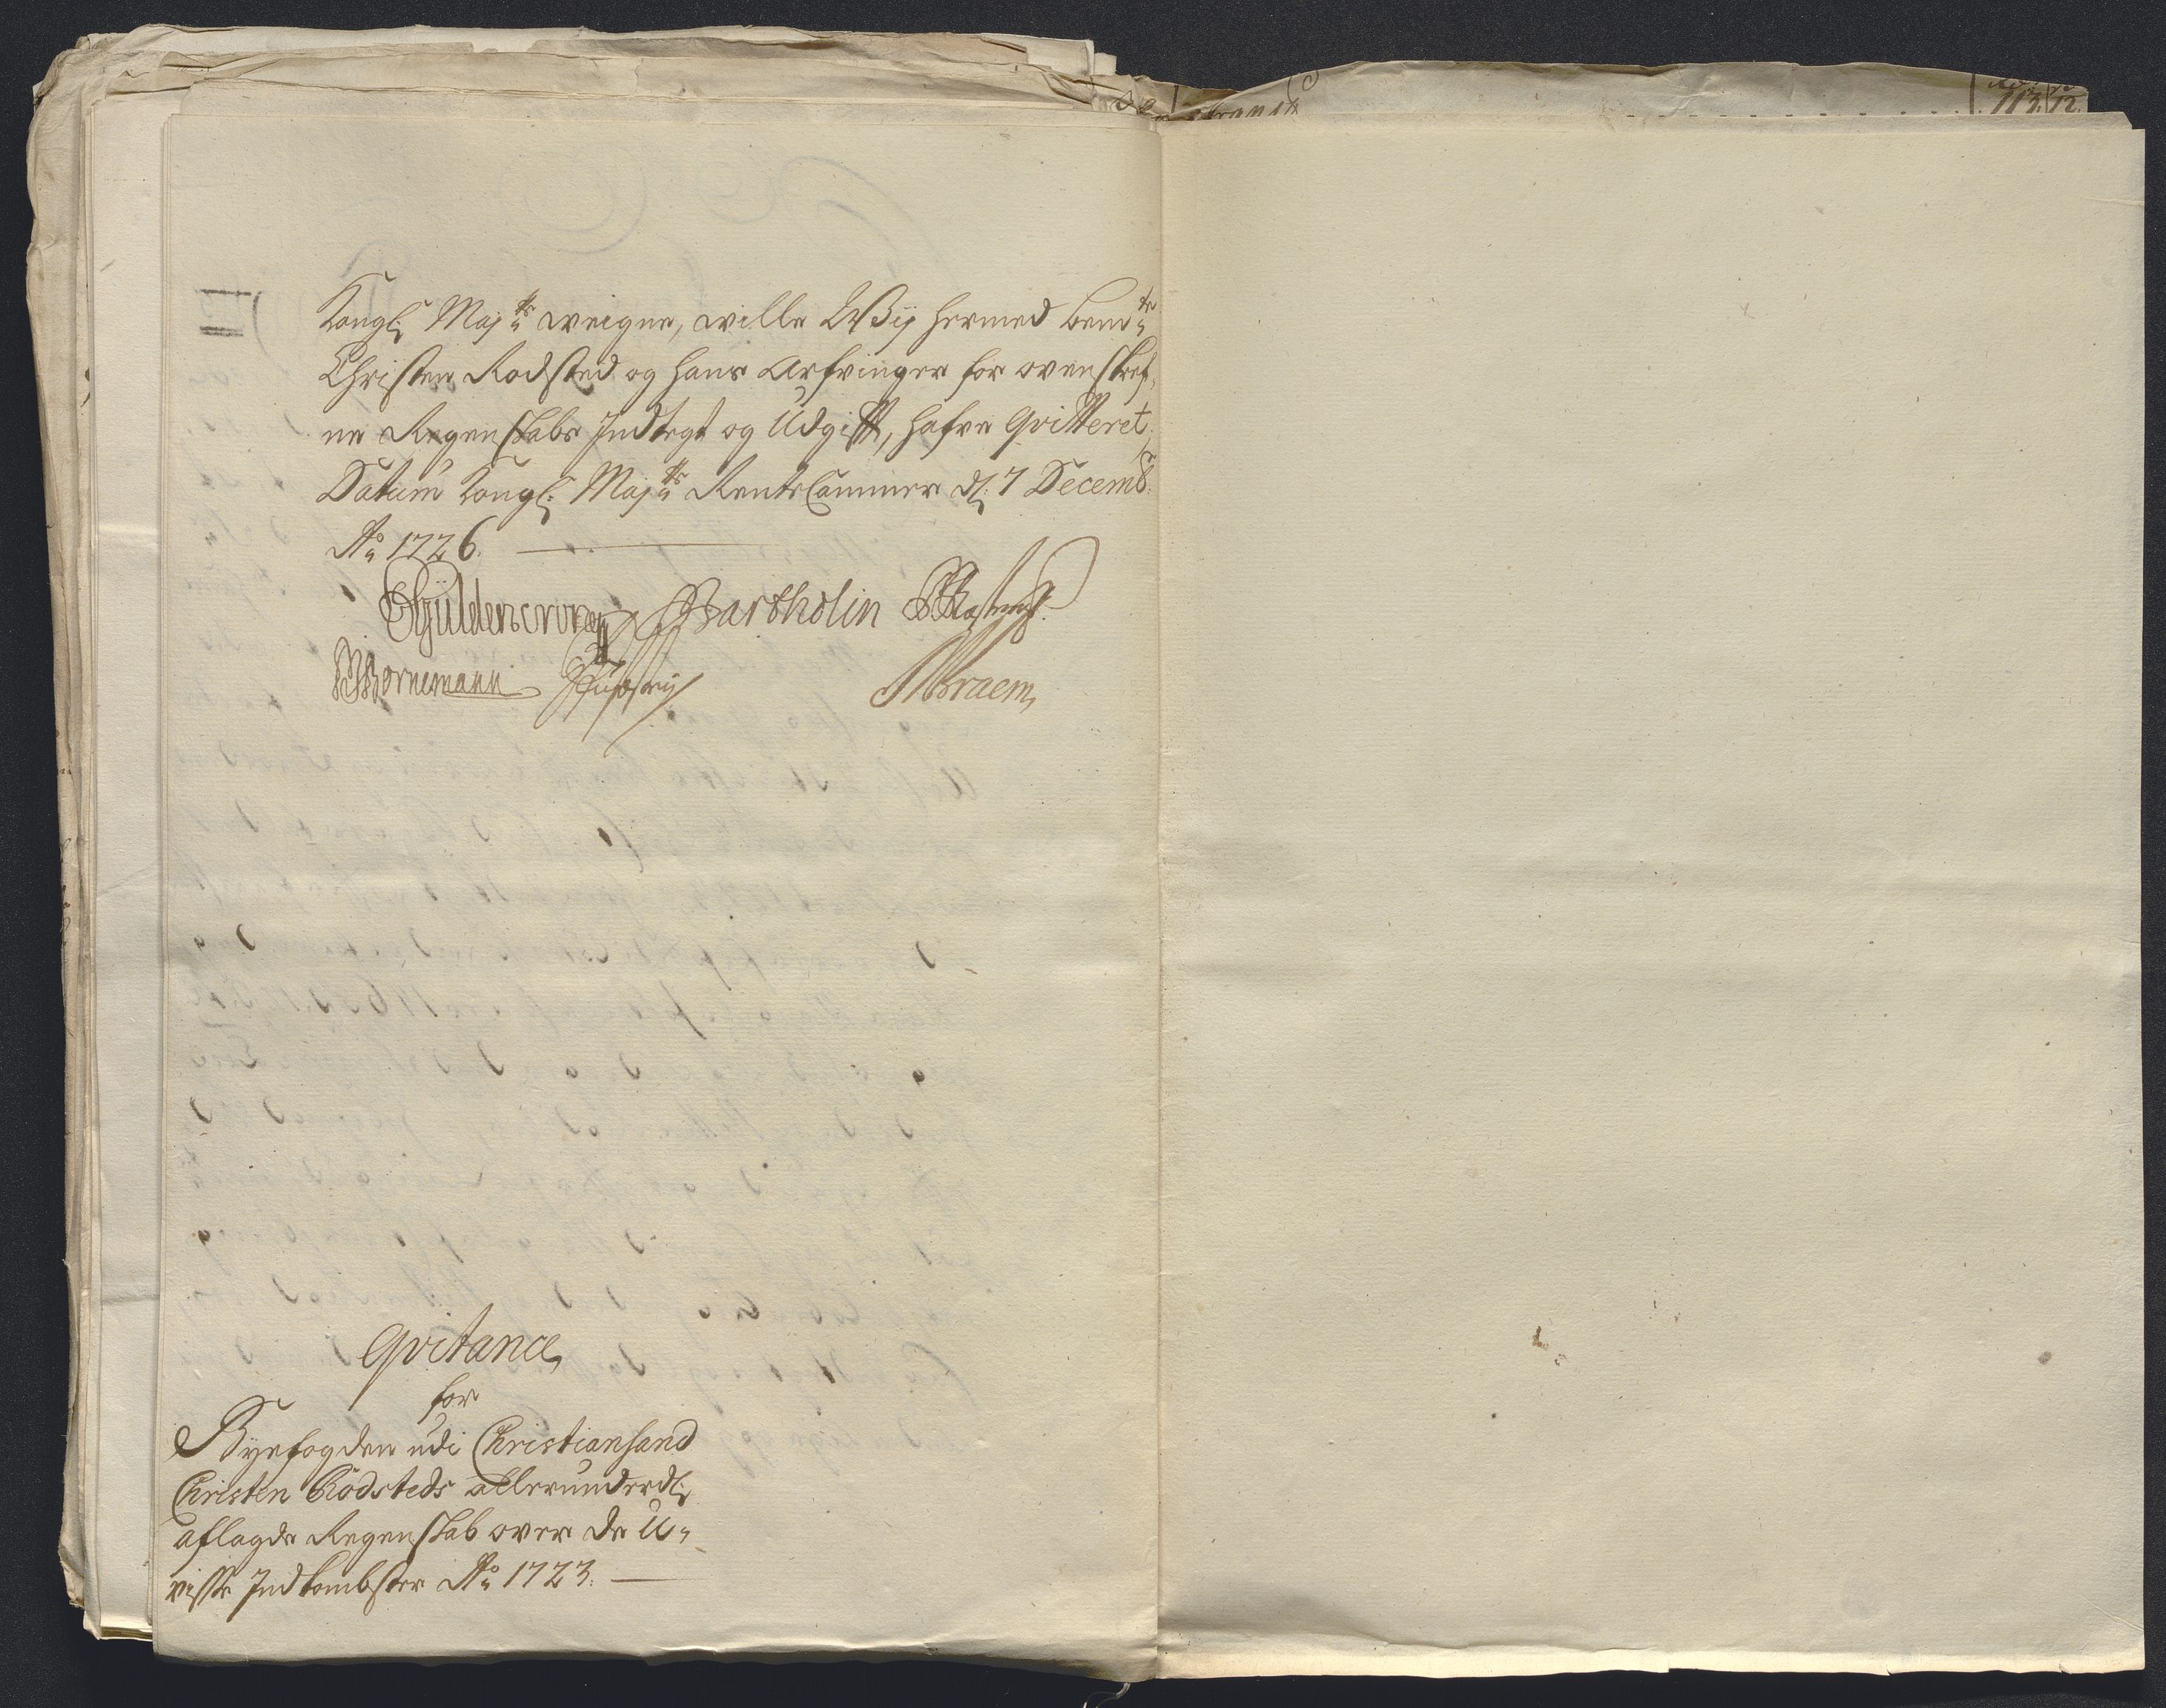 113. 12.
Kongl: Maj.ts weigne, wille Wij hermed bem.te
Christen Rodsted og hans Arfvinger for ovenskref,
ne Regenskabs Indtegt og Udgifft, hafve Qvitteret,
Datum Kongl: Maj.ts RenteCammer d: 7 Decemb:
Ao 1726.
Gyldencrone Bartholin
Bornemann Braem,
Qvitance,
for
Byefogden udi Christiansand
Christen Rodsteds allerunderd:
aflagde Regenskab over de U-
visse Indkombster Ao 1723.